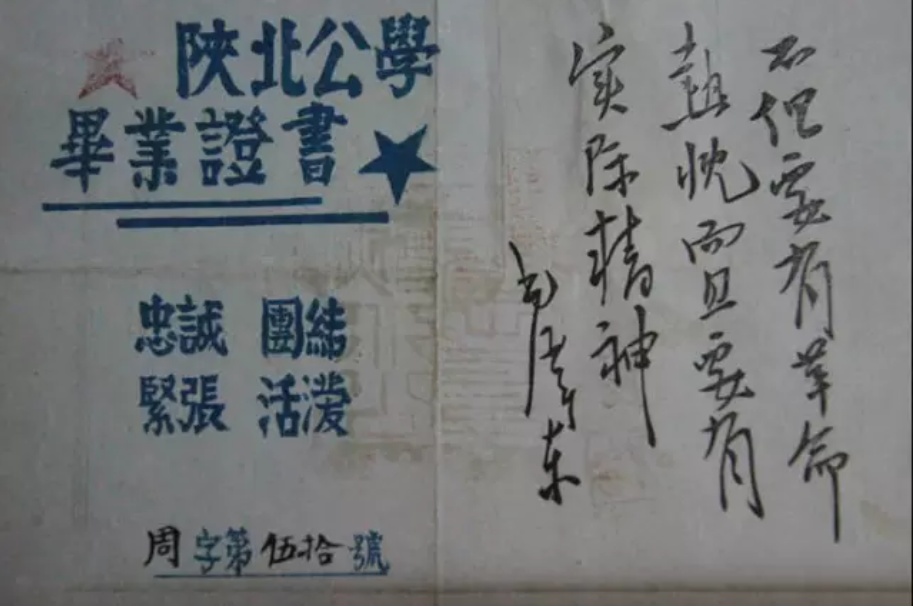 陝北公學
畢業證書
忠誠 團結
緊張 活潑
周字第伍拾號
不但要有革命
熱忱而且要有
实际精神
毛泽东